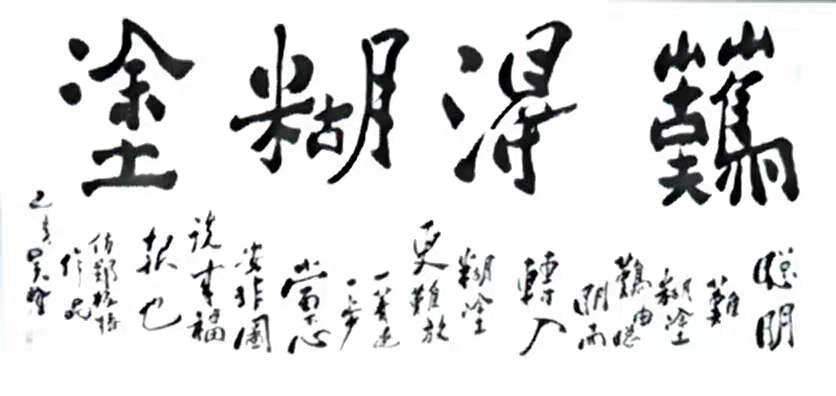 難得糊塗
聰明
難
糊塗
難由聰
明而
轉入
糊塗
更難放
一著退
一步
當下心
安非圖
來福
報也
仿鄭板橋
作品